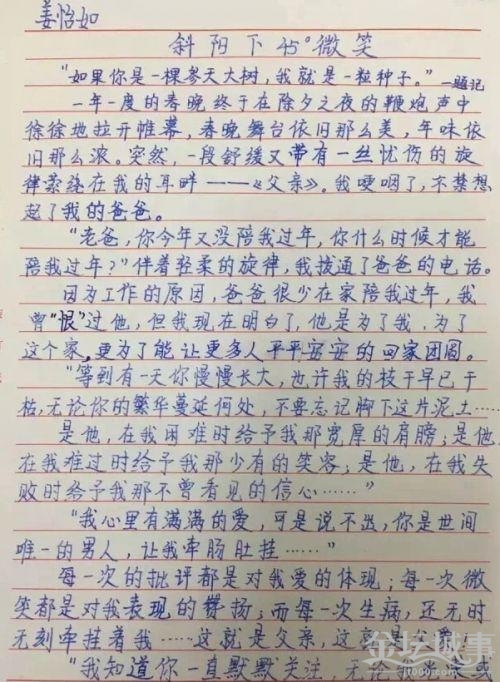 姜怡如
斜阳下45°微笑
“如果你是一棵参天大树,我就是一粒种子。”—题记
一年一度的春晚终于在除夕之夜的鞭炮声中
徐徐地拉开帷幕,春晚舞台依旧那么美,年味依
旧那么浓。突然,一段舒缓又带有一丝忧伤的旋
律萦绕在我的耳畔——《父亲》。我哽咽了,不禁想
起了我的爸爸。
“老爸,你今年又没陪我过年,你什么时候才能
陪我过年?”伴着轻柔的旋律,我拨通了爸爸的电话。
因为工作的原因,爸爸很少在家陪我过年,我
曾“恨”过他,但我现在明白了,他是为了我,为了
这个家,更为了能让更多人平平安安的回家团圆。
“等到有一天你慢慢长大,也许我的枝干早已干
枯,无论你的繁华蔓延何处,不要忘记脚下这片泥土……
是他,在我困难时给予我那宽厚的肩膀;是他,
在我难过时给予我那少有的笑容;是他,在我失
败时给予我那不曾看见的信心……”
“我心里有满满的爱,可是说不出,你是世间
唯一的男人,让我牵肠肚挂……”
每一次的批评都是对我爱的体现;每一次微
笑都是对我表现的赞扬;而每一次生病,还无时
无刻牵挂着我……这就是父亲,这就是
“我知道你一直默默关注,无论
金坛城事